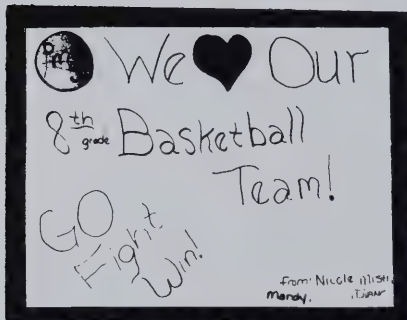 We ♥ Our
8th grade Basketball
Team!
GO
Fight
Win!
from: Nicole Misti
Mandy,